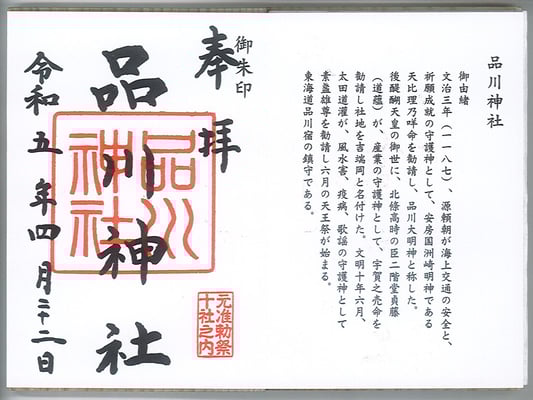 品川神社
御由緒
文治三年（一一八七）、源頼朝が海上交通の安全と、
祈願成就の守護神として、安房国洲崎明神である
天比理乃咩命を勧請し、品川大明神と称した。
後醍醐天皇の御世に、北條高時の臣二階堂貞藤
（道蘊）が、産業の守護神として、宇賀之売命を
勧請し社地を吉端岡と名付けた。文明十年六月、
太田道灌が、風水害、疫病、歌謡の守護神として
素盞雄尊を勧請し六月の天王祭が始まる。
東海道品川宿の鎮守である。
御朱印
奉拝
品川神社
品川
神社
元准勅祭
十社之内
令和五年四月二十二日